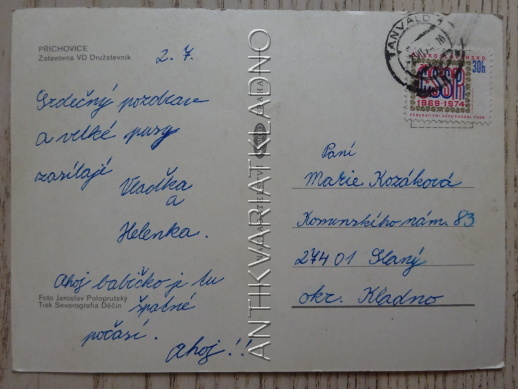 PŘÍCHOVICE
Zotavovna VD Družstevník
2. 7.
Srdečný pozdrav
a velké pusy
zasílají
Vlaďka
a
Helenka.
Ahoj babičko je tu
špatné
počasí.
Ahoj!!
Foto Jaroslav Poloprutský
Tisk Severografia Děčín
ANTIKVARIATKLADNO
TANVALD 1
30h
ČSSR
1969-1974
Paní
Marie Kozáková
Komenského nám. 83
274 01 Slaný
okr. Kladno